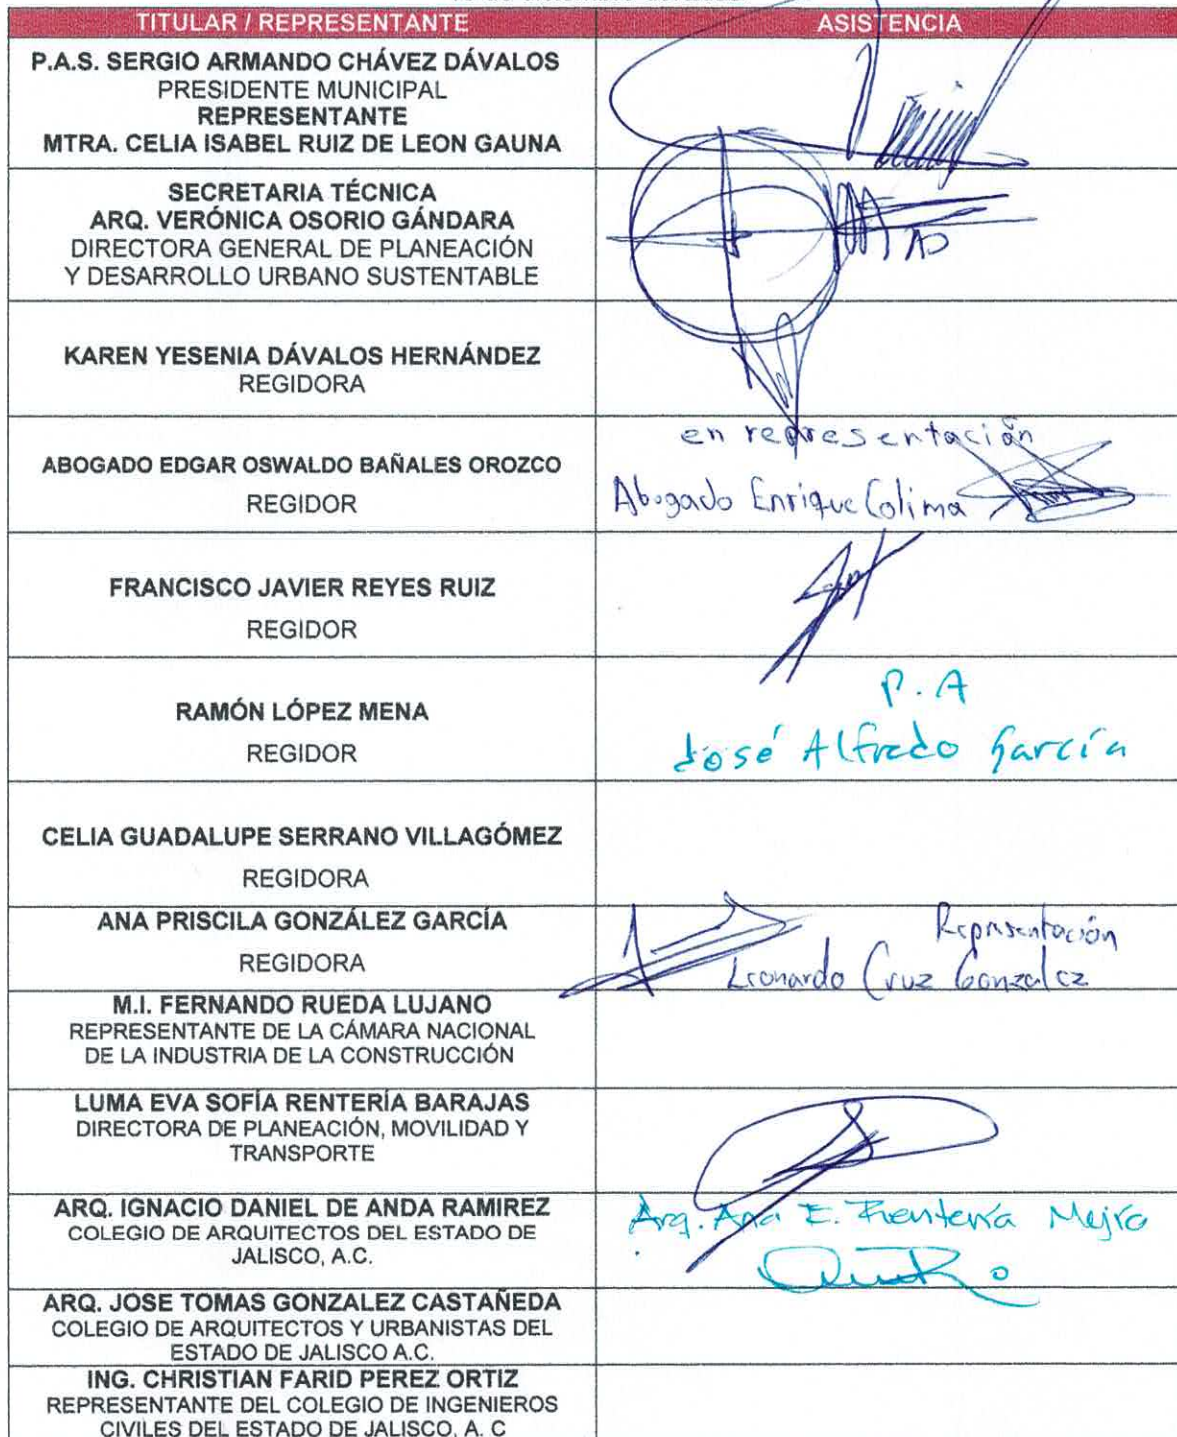 TITULAR / REPRESENTANTE
ASISTENCIA
P.A.S. SERGIO ARMANDO CHÁVEZ DÁVALOS
PRESIDENTE MUNICIPAL
REPRESENTANTE
MTRA. CELIA ISABEL RUIZ DE LEON GAUNA
SECRETARIA TÉCNICA
ARQ. VERÓNICA OSORIO GÁNDARA
DIRECTORA GENERAL DE PLANEACIÓN
Y DESARROLLO URBANO SUSTENTABLE
KAREN YESENIA DÁVALOS HERNÁNDEZ
REGIDORA
ABOGADO EDGAR OSWALDO BAÑALES OROZCO
REGIDOR
en representación
Abogado Enrique Colima
FRANCISCO JAVIER REYES RUIZ
REGIDOR
RAMÓN LÓPEZ MENA
REGIDOR
P.A
José Alfredo García
CELIA GUADALUPE SERRANO VILLAGÓMEZ
REGIDORA
ANA PRISCILA GONZÁLEZ GARCÍA
REGIDORA
Representación
Leonardo Cruz Gonzalez
M.I. FERNANDO RUEDA LUJANO
REPRESENTANTE DE LA CÁMARA NACIONAL
DE LA INDUSTRIA DE LA CONSTRUCCIÓN
LUMA EVA SOFÍA RENTERÍA BARAJAS
DIRECTORA DE PLANEACIÓN, MOVILIDAD Y
TRANSPORTE
ARQ. IGNACIO DANIEL DE ANDA RAMIREZ
COLEGIO DE ARQUITECTOS DEL ESTADO DE
JALISCO, A.C.
Arq. Ana E. Rentería
ARQ. JOSE TOMAS GONZALEZ CASTAÑEDA
COLEGIO DE ARQUITECTOS Y URBANISTAS DEL
ESTADO DE JALISCO A.C.
ING. CHRISTIAN FARID PEREZ ORTIZ
REPRESENTANTE DEL COLEGIO DE INGENIEROS
CIVILES DEL ESTADO DE JALISCO, A. C